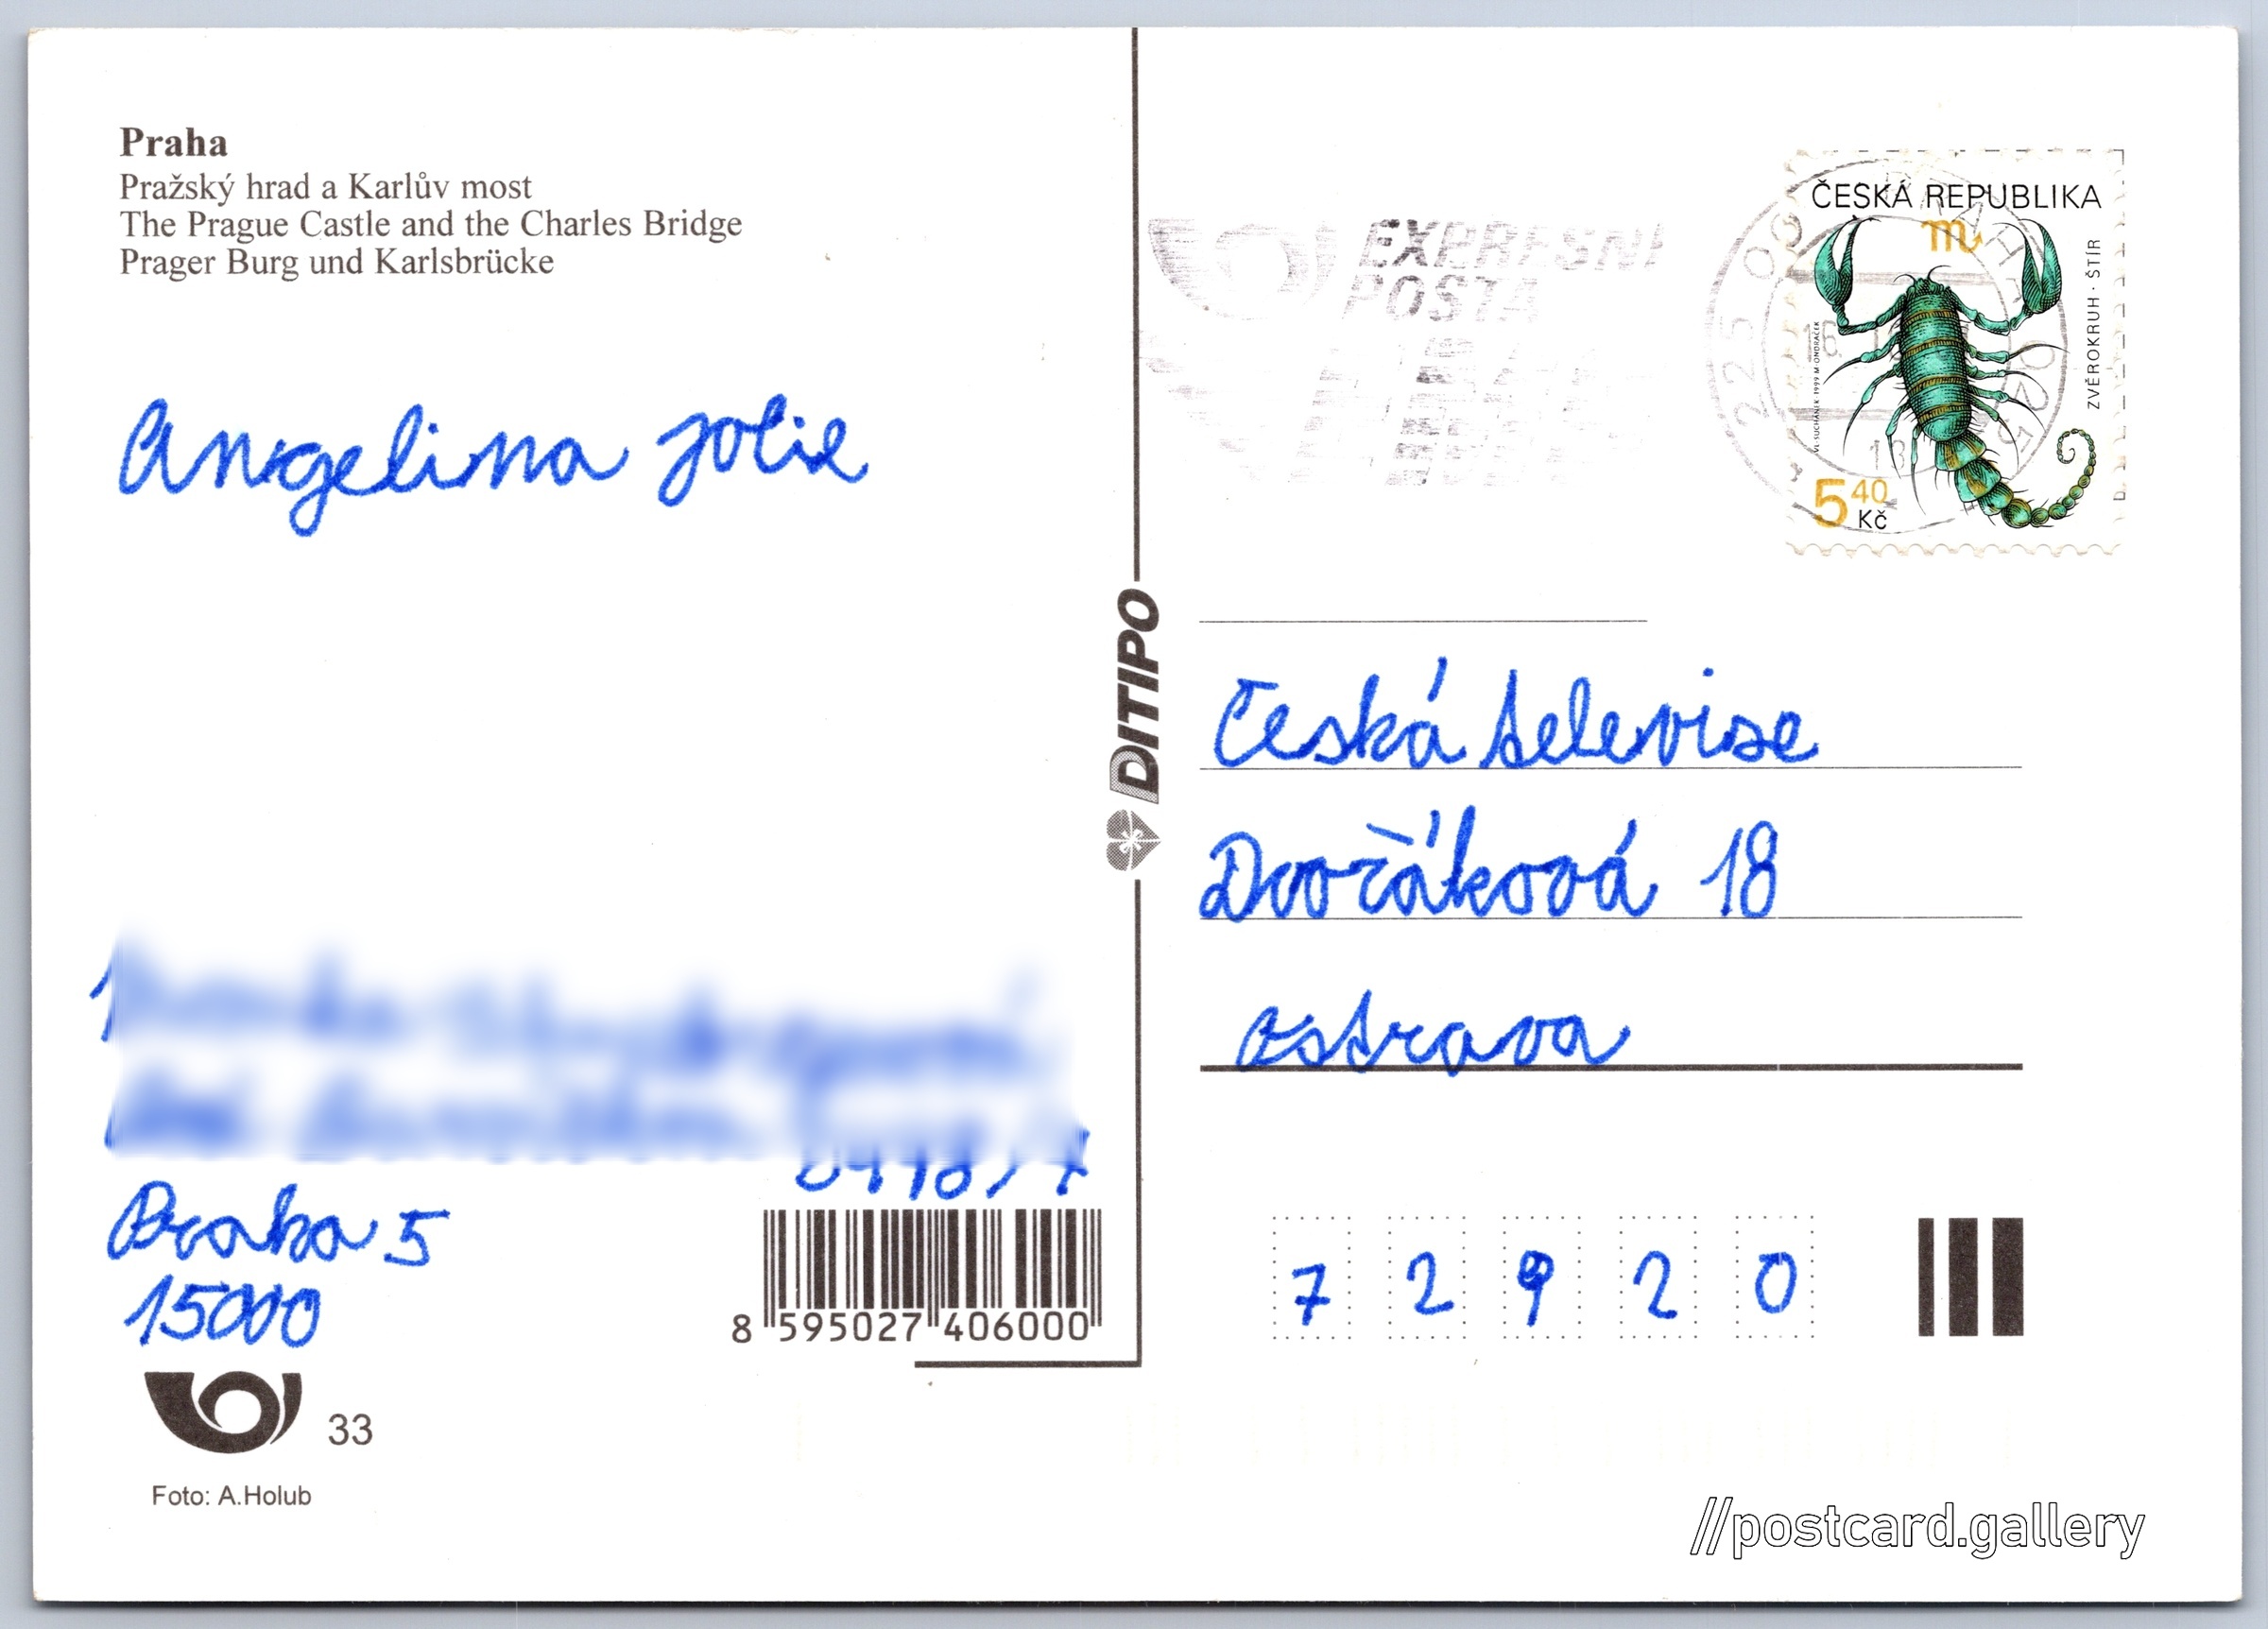 Praha
Pražský hrad a Karlův most
The Prague Castle and the Charles Bridge
Prager Burg und Karlsbrücke
Angelina Jolie
Praha 5
15000
8 595027 406000
33
Foto: A.Holub
DITIPO
EXPRESNÍ
POSTA
225 00
ČESKÁ REPUBLIKA
ZVĚROKRUH · ŠTÍR
VL. SUCHÁNEK 1999 M. ONDRÁČEK
5 40
Kč
Česká televise
Dvořáková 18
Ostrava
7 2 9 2 0
//postcard.gallery